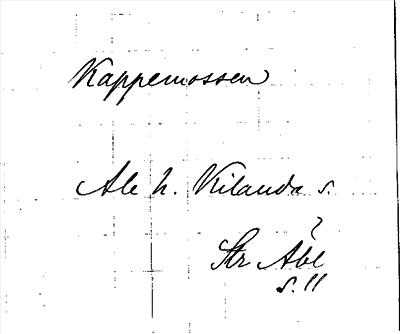 Kappemossen
Ale h. Kilanda s.
?
Str Åbl
s. 11